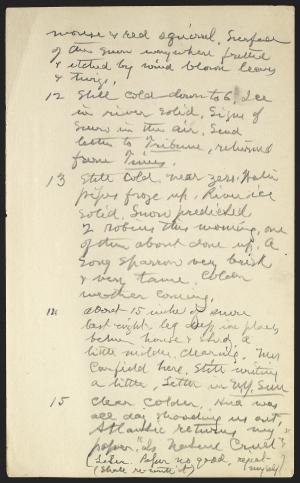 mouse & red squirrel. Surface
of the snow everywhere fretted
& etched by wind blown leaves
& twigs.
12 Still cold down to 6. Ice
in river solid. Signs of
snow in the air. Send
letter to Tribune, returned
from Times.
13 Still cold, near zero. Water
pipes froze up. River ice
solid. Snow predicted
2 robins this morning, one
of them about done up. A
song sparrow very brisk
& very tame. Colder
weather coming.
14 about 15 inches of snow
last night. leg deep in places
between house & study. a
little milder, clearing. Mrs
Canfield here. Still writing
a little. Letter in N.Y. Sun
15 Clear colder. Hud was
all day shoveling us out.
Atlantic returns my
paper, "Is Nature Cruel"
Later. Paper no good, repeat
(Shall re-write it) myself